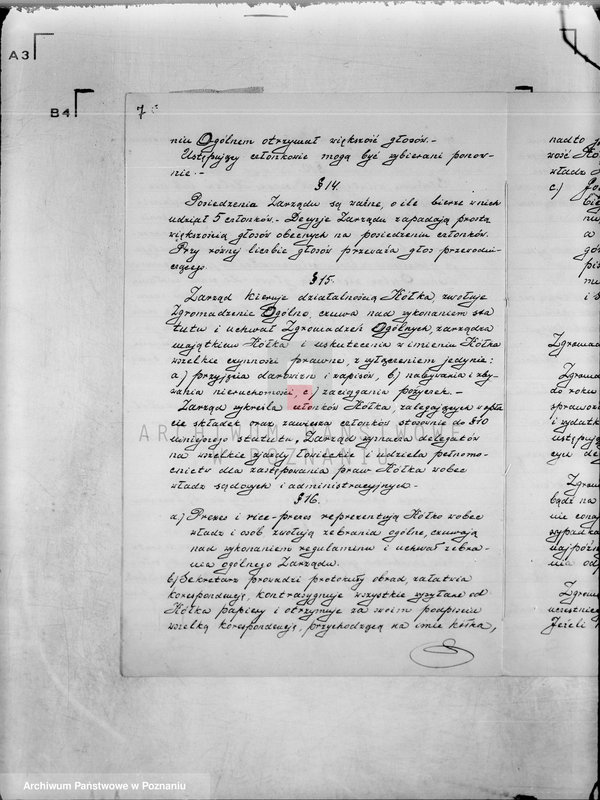 A3
B4
7
niu Ogólnem otrzymał większość głosów.-
Ustępujący członkowie mogą być wybierani ponow-
nie.-
§ 14.
Posiedzenia Zarządu są ważne, o ile bierze w nich
udział 5 członków.- Decyzje Zarządu zapadają prostą
większością głosów obecnych na posiedzeniu członków.
Przy równej liczbie głosów przeważa głos przewodni-
czącego.
§ 15.
Zarząd kieruje działalnością Kółka, zwołuje
Zgromadzenie Ogólne, czuwa nad wykonaniem sta
tutu i uchwał Zgromadzeń Ogólnych, zarządza
majątkiem Kółka i uskutecznia w imieniu Kółka
wszelkie czynności prawne, z wyłączeniem jedynie:
a) przyjęcia darowizn i zapisów, b) nabywania i zby-
wania nieruchomości, c) zaciągania pożyczek.-
Zarząd wykreśla członków Kółka, zalegających w opła
cie składek oraz zawiesza członków stosownie do § 10
niniejszego statutu, Zarząd wyznacza delegatów
na wszelkie zjazdy łowieckie i udziela pełnomo-
cnictw dla zastępowania praw Kółka wobec
władz sądowych i administracyjnych.-
§ 16.
a) Prezes i vice-prezes reprezentują Kółko wobec
władz i osób zwołują zebrania ogólne, czuwają
nad wykonaniem regulaminu i uchwał zebra-
nia ogólnego Zarządu.
b) Sekretarz prowadzi protokuły obrad, załatwia
korespondencję, kontrasygnuje wszystkie wysyłane od
Kółka papiery i otrzymuje za swoim podpisem
wszelką korespondencję, przychodzącą na imię kółka,
nadto
władz
c)
a
i
Zgromad
do roku
sprawozd
i wydatk
ustępują
bądź na
nie
wypadka
najpóźn
nia od
Jeżeli
ARCHIWUM PAŃSTWOWE
W POZNANIU
Archiwum Państwowe w Poznaniu